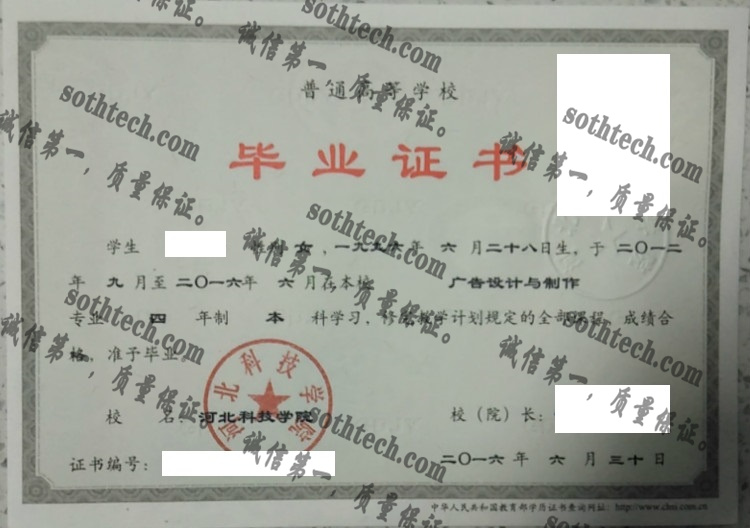 普通高等学校
毕业证书
学生 性别 女，一九九六年 六 月二十八日生，于 二〇一二
年 九 月至 二〇一六年 六 月在本校 广告设计与制作
专业 四 年制 本 科学习，修完教学计划规定的全部课程，成绩合
格，准予毕业。
河北科技学院
校 名：河北科技学院
校（院）长：
证书编号：
二〇一六 年 六 月 三十 日
中华人民共和国教育部学历证书查询网址：http://www.chsi.com.cn
sothtech.com
诚信第一，质量保证。
sothtech.com
诚信第一，质量保证。
sothtech.com
诚信第一，质量保证。
sothtech.com
诚信第一，质量保证。
sothtech.com
诚信第一，质量保证。
sothtech.com
诚信第一，质量保证。
sothtech.com
诚信第一，质量保证。